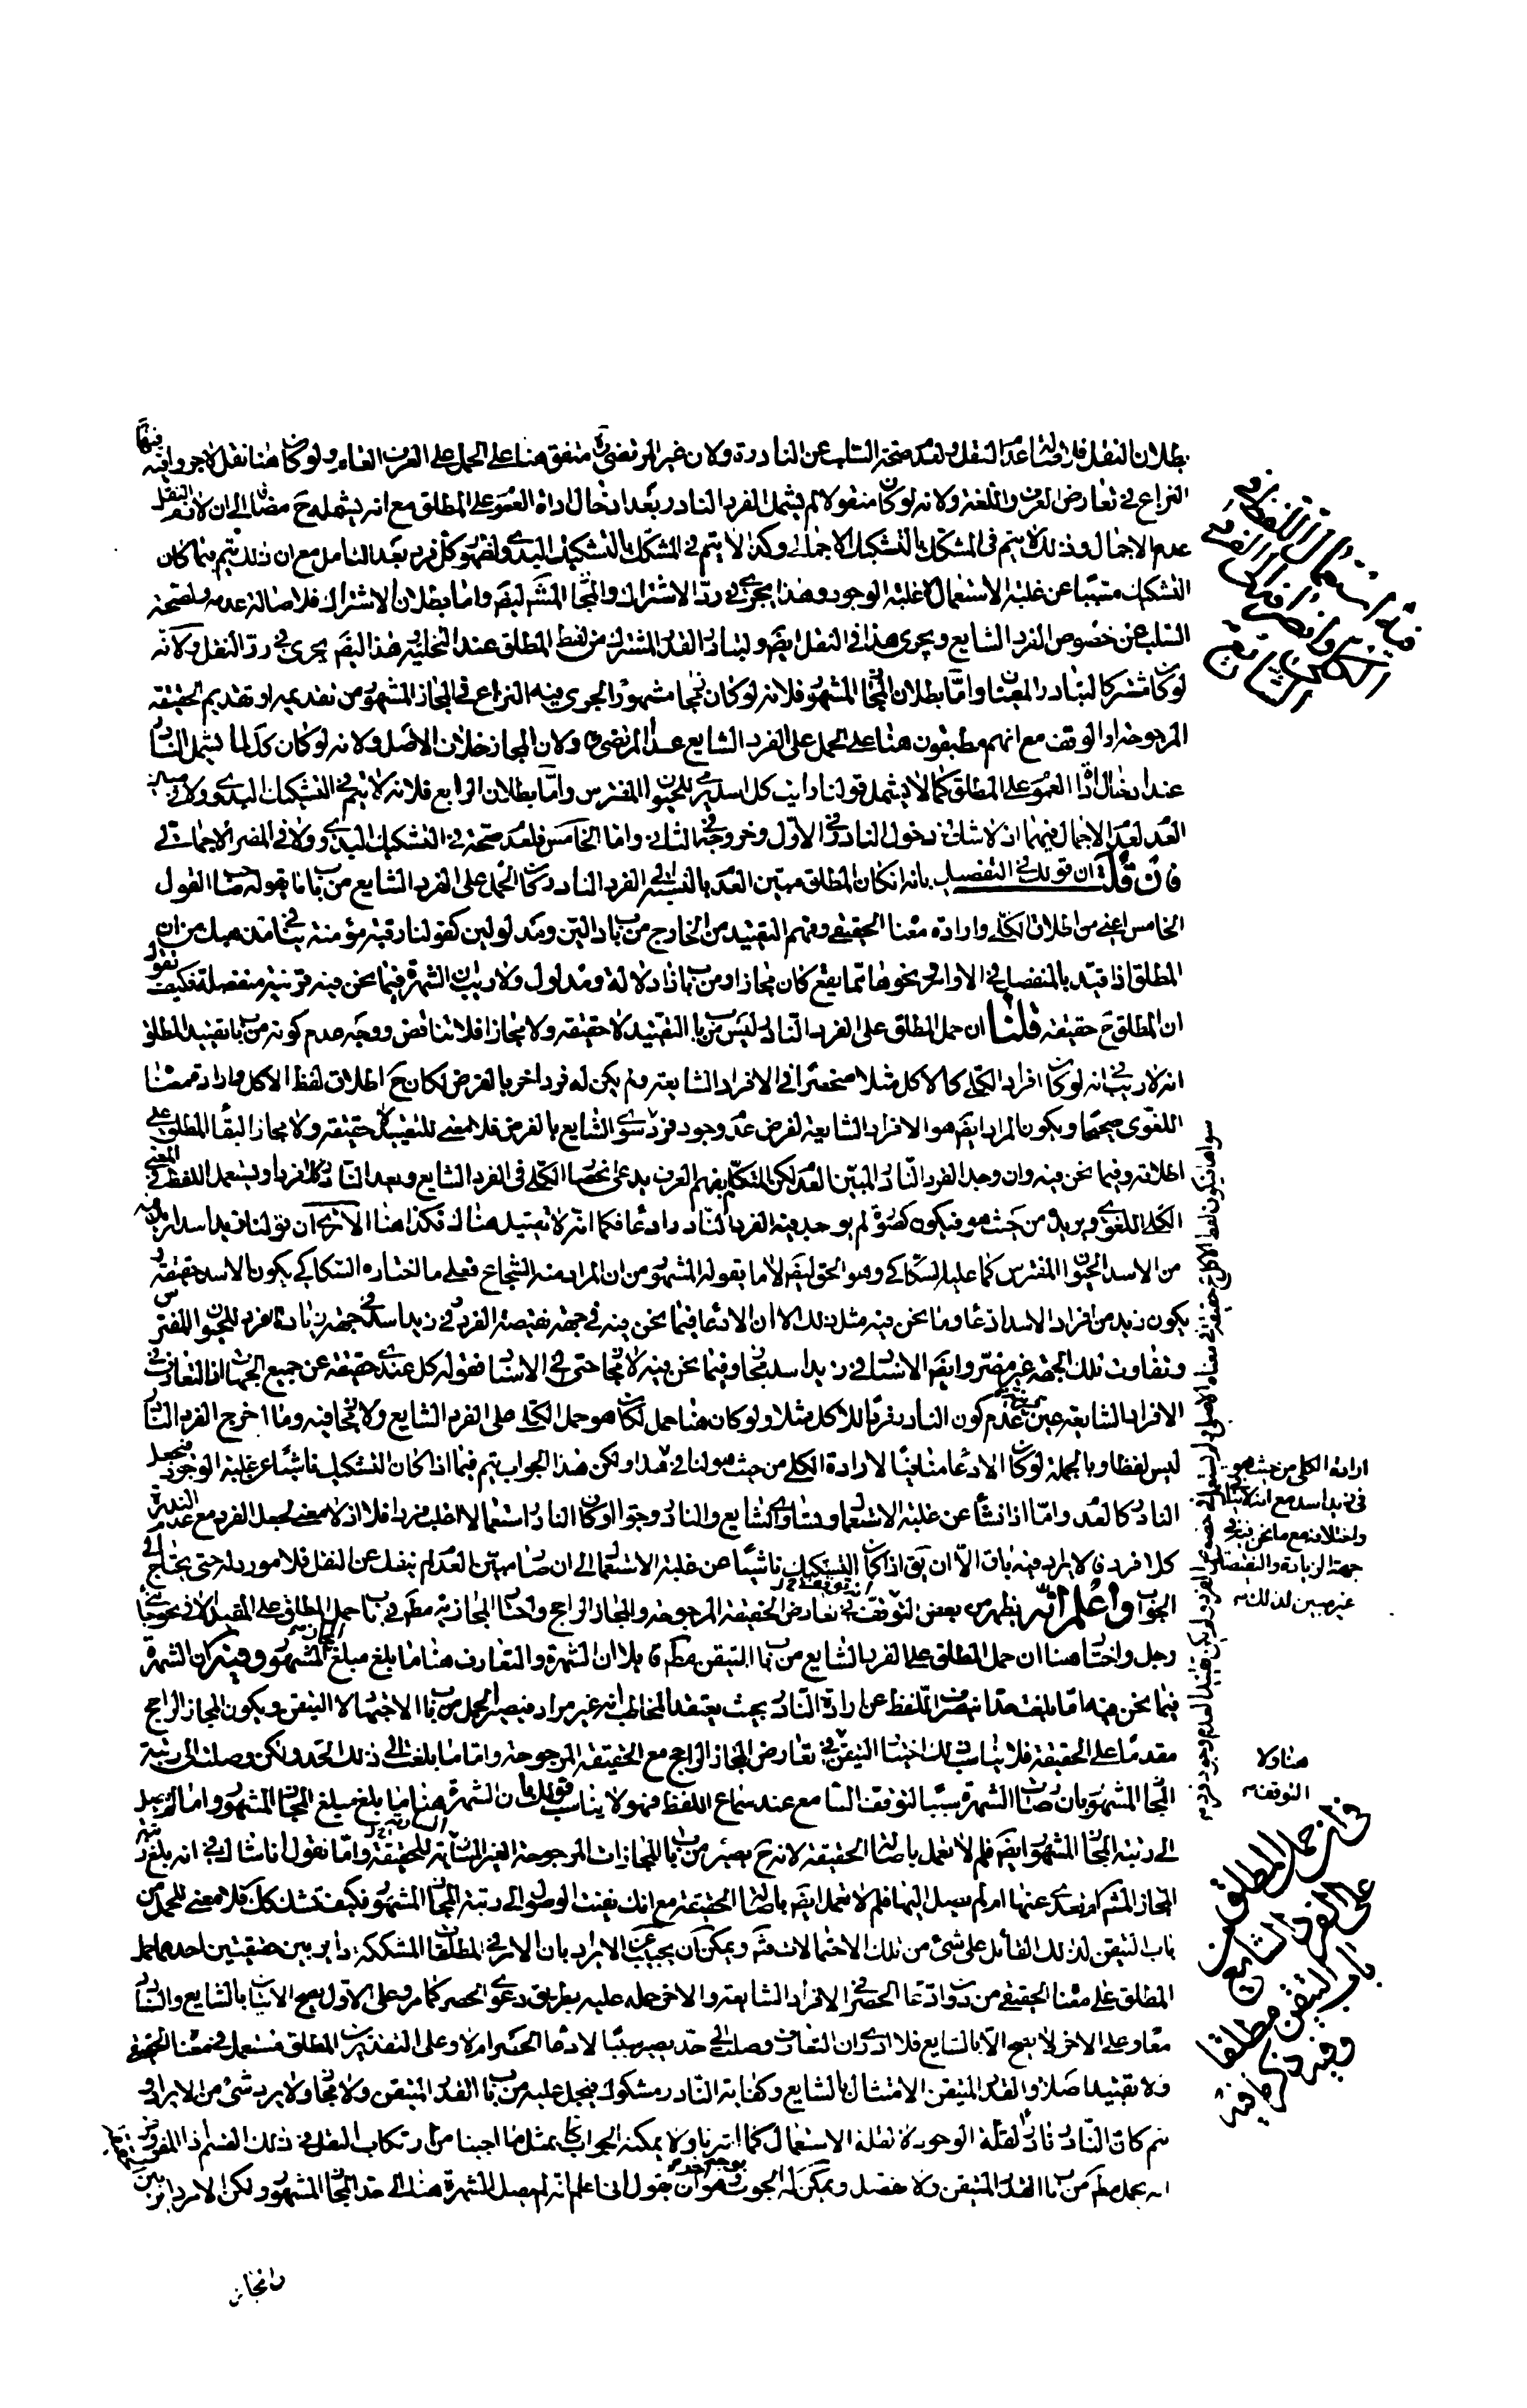 بطلان النقل فلاصالة عدم النقل ولعدم صحة السلب عن النادرة ولان غير المرتضى ره متفق هنا على الحمل على العرف العام ولو كان هنا نقل لاجروا فيه
النزاع في تعارض العرف واللغة ولانه لو كان منقولا لم يشمل الفرد النادر بعد ادخال اداة العموم على المطلق مع انه يشمله ح مضافا الى ان لازم النقل
عدم الاجمال وذلك لا يتم في المشكك بالتشكيك الاجمالي وكذا لا يتم في المشكك بالتشكيك البدوي لظهور كل فرد بعد التامل مع ان ذلك يتم فيما كان
التشكيك مسببا عن غلبة الاستعمال لا غلبة الوجود وهذا يجري في رد الاشتراك والمجاز المشهور ايضا واما بطلان الاشتراك فلاصالة عدمه ولصحة
السلب عن خصوص الفرد الشايع ويجرى هذا في النقل ايضا ولتبادر القدر المشترك من لفظ المطلق عند التخلية هذا ايضا يجرى في رد النقل ولانه
لو كان مشتركا لتبادر المعنيان واما بطلان المجاز المشهور فلانه لو كان مجازا مشهورا لجرى فيه النزاع في المجاز المشهور من تقديمه او تقديم الحقيقة
المرجوحة او الوقف مع انهم مطبقون هنا على الحمل على الفرد الشايع عدا المرتضى ره ولان المجاز خلاف الاصل ولانه لو كان كذا لما يشمل النادر
عند ادخال اداة العموم على المطلق كما لا يشمل قولنا رايت كل اسد يرمي للحيوان المفترس واما بطلان الرابع فلانه لا يتم في التشكيك البدوي ولا في مبين
العدم لعدم الاجمال فيهما اذ لا شك في دخول النادر في الاول وخروجه في الثاني واما الخامس فلعدم صحته في التشكيك البدوي ولا في المضر الاجمالي
فان قلت ان قولك في التفصيل بانه ان كان المطلق مبين العدم بالنسبة الى الفرد النادر كان الحمل على الفرد الشايع من باب ما يقوله صاحب القول
الخامس اعني من اطلاق الكلي وارادة معناه الحقيقي وفهم التقييد من الخارج من باب دالين ومدلولين كقولنا رقبة مؤمنة
المطلق اذا قيد بالمنفصل في الاوامر ونحوها مما يقع كان مجازا ومن باب اذا دلالة ومدلول ولا ريب ان الشهرة فيما نحن فيه قرينة منفصلة فكيف تقول
ان المطلق ح حقيقة قلنا ان حمل المطلق على الفرد النادر ليس من باب التقييد لا حقيقة ولا مجازا فلا تناقض ووجه عدم كونه من باب تقييد المطلق
انه لا ريب في انه لو كان افراد الكلي كالاكل مثلا منحصرا في الافراد الشايعة ولم يكن له فرد اخر بالفرض لكان ح اطلاق لفظ الاكل وارادة معناه
اللغوى صحيحا ويكون المراد ايضا هو الافراد الشايعة لفرض عدم وجود فرد سوى الشايع بالفرض فلا معنى للتقييد لا حقيقة ولا مجازا لبقاء المطلق على
اطلاقه وفيما نحن فيه وان وجد الفرد النادر المبين العدم لكن المتكلم بفهم العرف يدعى انحصار الكلي في الفرد الشايع ويعد النادر كلا فرد ويستعمل اللفظ في المعنى
الكلي اللغوي ويريده من حيث هو فيكون كصورة لم يوجد فيه الفرد النادر ادعاء فكما انه لا تقييد هناك فكذا هنا الا ترى ان قولنا زيد اسد اريد به
من الاسد الحيوان المفترس كما عليه السكاكي وهو الحق ايضا لا ما يقوله المشهور من ان المراد منه الشجاع فعلى ما اختاره السكاكي يكون الاسد حقيقة
يكون زيد من افراد الاسد ادعاء وما نحن فيه مثل ذلك الا ان الادعاء فيما نحن فيه في جهة نقيصة الفرد في زيد اسد في جهة زيادة فرد للحيوان المفترس
وتفاوت تلك الجهة غير مضر وايضا الاسناد في زيد اسد مجاز وفيما نحن فيه لا مجاز حتى في الاسناد فقوله كل عندي حقيقة عن جميع الجهات اذ التعارف في
الافراد الشايعة عين عدم كون النادر فردا للاكل مثلا ولو كان هنا حمل لكان هو حمل الكلي على الفرد الشايع ولا مجاز فيه وما اخرج الفرد النادر
ليس لفظا وبالجملة لو كان الادعاء منافيا لارادة الكلي من حيث هو لنا في هذا ولكن هذا الجواب يتم فيما اذا كان التشكيك ناشئا عن غلبة الوجود فيجعل
النادر كالعدم واما اذا نشأ عن غلبة الاستعمال وتساوى الشايع والنادر وجودا او كان النادر استعمالا اغلب فردا فلا اذ لا معنى لجعل الفرد مع عدم الندرة
كلا فرد فالايراد فيه باق الا ان يق اذا كان التشكيك ناشئا عن غلبة الاستعمال الى ان صار مبين العدم لم ينفك عن النقل فلا مورد له حتى يحتاج الى
الجواب واعلم انه يظهر من بعض التوقف في تعارض الحقيقة المرجوحة والمجاز الراجح واختار المجازية مط في باب حمل المطلق على المقيد الا في نحو جاءني
رجل واختار هنا ان حمل المطلق على الفرد الشايع من باب التيقن مط قائلا ان الشهرة والتعارف هنا ما بلغ مبلغ المجاز المشهور وفيه ان الشهرة
فيما نحن فيه اما بلغت حدا ينصرف اللفظ عن ارادة النادر بحيث يعتقد المخاطب انه غير مراد فيصير الحمل من باب الاجتهاد لا التيقن ويكون المجاز الراجح
مقدما على الحقيقة فلا يناسب لك اختيار التيقن في تعارض المجاز الراجح مع الحقيقة المرجوحة واما ما بلغت الى ذلك الحد ولكن وصلت الى رتبة
المجاز المشهور بان صارت الشهرة سببا لتوقف السامع عند سماع اللفظ فهو لا يناسب قولك ان الشهرة هنا ما بلغ مبلغ المجاز المشهور واما لم يصل
الى رتبة المجاز المشهور ايضا فلم لا تعمل باصالة الحقيقة لانه ح يصير من باب المجازات المرجوحة الغير المساوية للحقيقة واما تقول انا شاك في انه بلغ رتبة
المجاز المشهور ام تعدى عنها ام لم يصل اليها فلم لا تعمل ايضا باصالة الحقيقة مع انك نفيت الوصول الى رتبة المجاز المشهور فكيف تشك فلا معنى للحمل من
باب التيقن لذلك القائل على شئ من تلك الاحتمالات فتم ويمكن ان يجاب عن الايراد بان الامر في المطلقات المشككة داير بين حقيقتين احدهما حمل
المطلق على معناه الحقيقي من دون ادعاء الحصر في الافراد الشايعة والاخر حمله عليه بطريق دعوى الحصر كما مر وعلى الاول يصح الاتيان بالشايع والنادر
معا وعلى الاخر لا يصح الا بالشايع فلا ادرى ان التعارف وصل الى حد يصير سببا لادعاء الحصر ام لا وعلى التقديرين المطلق مستعمل في معناه الحقيقي
ولا تقييد اصلا والقدر المتيقن الامتثال بالشايع وكفاية النادر مشكوك فيحمل عليه من باب القدر المتيقن ولا مجاز ولا يرد شئ من الايراد
نعم كان النادر نادرا لقلة الوجود لا لقلة الاستعمال كما اشرنا ولا يمكنه الجواب بمثل ما اجبنا من ارتكاب النقل في ذلك القسم اذ المفروض
انه يحمل مط من باب القدر المتيقن ولا فصل ويمكن له الجواب بوجه اخر وهو ان يقول انا نعلم انه لم يصل الشهرة هنا الى حد المجاز المشهور ولكن الامر دائر بين
والمجاز
ارادة الكلي من حيث هو
في زيد اسد مع
واختلافه مع ما نحن فيه في
جهة الزيادة والنقيصة
غير مبين لذلك منه
هنا ولا
التوقف منه
في ان حمل المطلق
على الفرد الشايع من
باب التيقن مطلقا
وفيه ذكر ما فيه